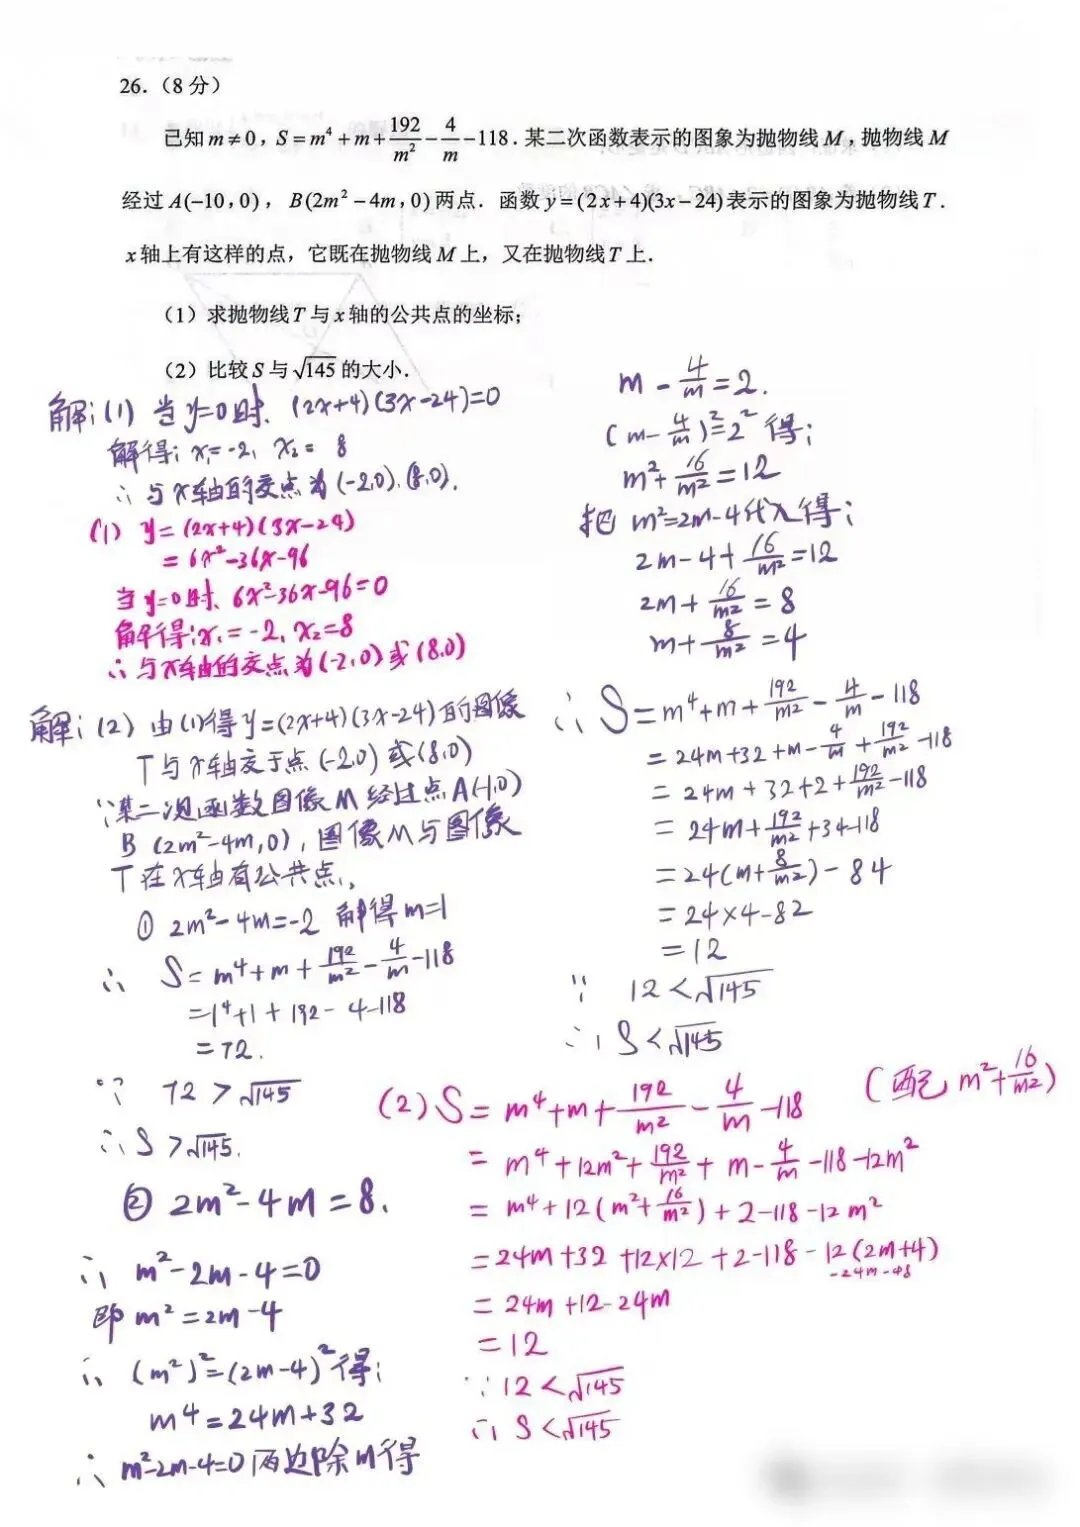 26.（8 分）
已知 m≠0，S=m⁴+m+192/m²-4/m-118．某二次函数表示的图象为抛物线 M，抛物线 M
经过 A(-10，0)，B(2m²-4m，0) 两点．函数 y=(2x+4)(3x-24) 表示的图象为抛物线 T．
x 轴上有这样的点，它既在抛物线 M 上，又在抛物线 T 上．
（1）求抛物线 T 与 x 轴的公共点的坐标；
（2）比较 S 与 √145 的大小．
解：(1) 当 y=0时、(2x+4)(3x-24)=0
解得：x₁=-2, x₂= 8
∴ 与 x轴的交点为 (-2,0).(8,0).
(1) y=(2x+4)(3x-24)
= 6x²-36x-96
当 y=0时、6x²-36x-96=0
解得：x₁=-2, x₂=8
∴ 与x轴的交点为(-2,0)或(8,0)
解：(2) 由(1)得 y=(2x+4)(3x-24)的图像
T与x轴交于点 (-2,0) 或(8,0)
∵某二次函数图像 M 经过点 A(-1,0)
B (2m²-4m,0)，图像M与图像
T 在x轴有公共点，
① 2m²-4m=-2 解得 m=1
∴ S=m⁴+m+192/m²-4/m-118
=1⁴+1+192-4-118
=72.
∵ 72 > √145
∴ S >√145.
② 2m²-4m=8.
∴ m²-2m-4=0
即 m²=2m-4
∴ (m²)²=(2m-4)²得：
m⁴=24m+32
∴ m²-2m-4=0 两边除m得
m - 4/m =2.
(m-4/m)²=2² 得：
m²+16/m²=12
把 m²=2m-4代入得：
2m-4+16/m²=12
2m+16/m²=8
m+8/m²=4
∴ S=m⁴+m+192/m²-4/m-118
=24m+32+m-4/m+192/m²-118
= 24m+32+2+192/m²-118
= 24m+192/m²+34-118
=24(m+8/m²)-84
=24×4-82
=12
∵ 12<√145
∴ S<√145
(2) S=m⁴+m+192/m²-4/m-118 (配 m²+16/m²)
= m⁴+12m²+192/m²+m-4/m-118-12m²
= m⁴+12(m²+16/m²)+2-118-12m²
=24m+32+12×12+2-118-12(2m+4)
-24m-48
= 24m+12-24m
=12
∵ 12<√145
∴ S<√145